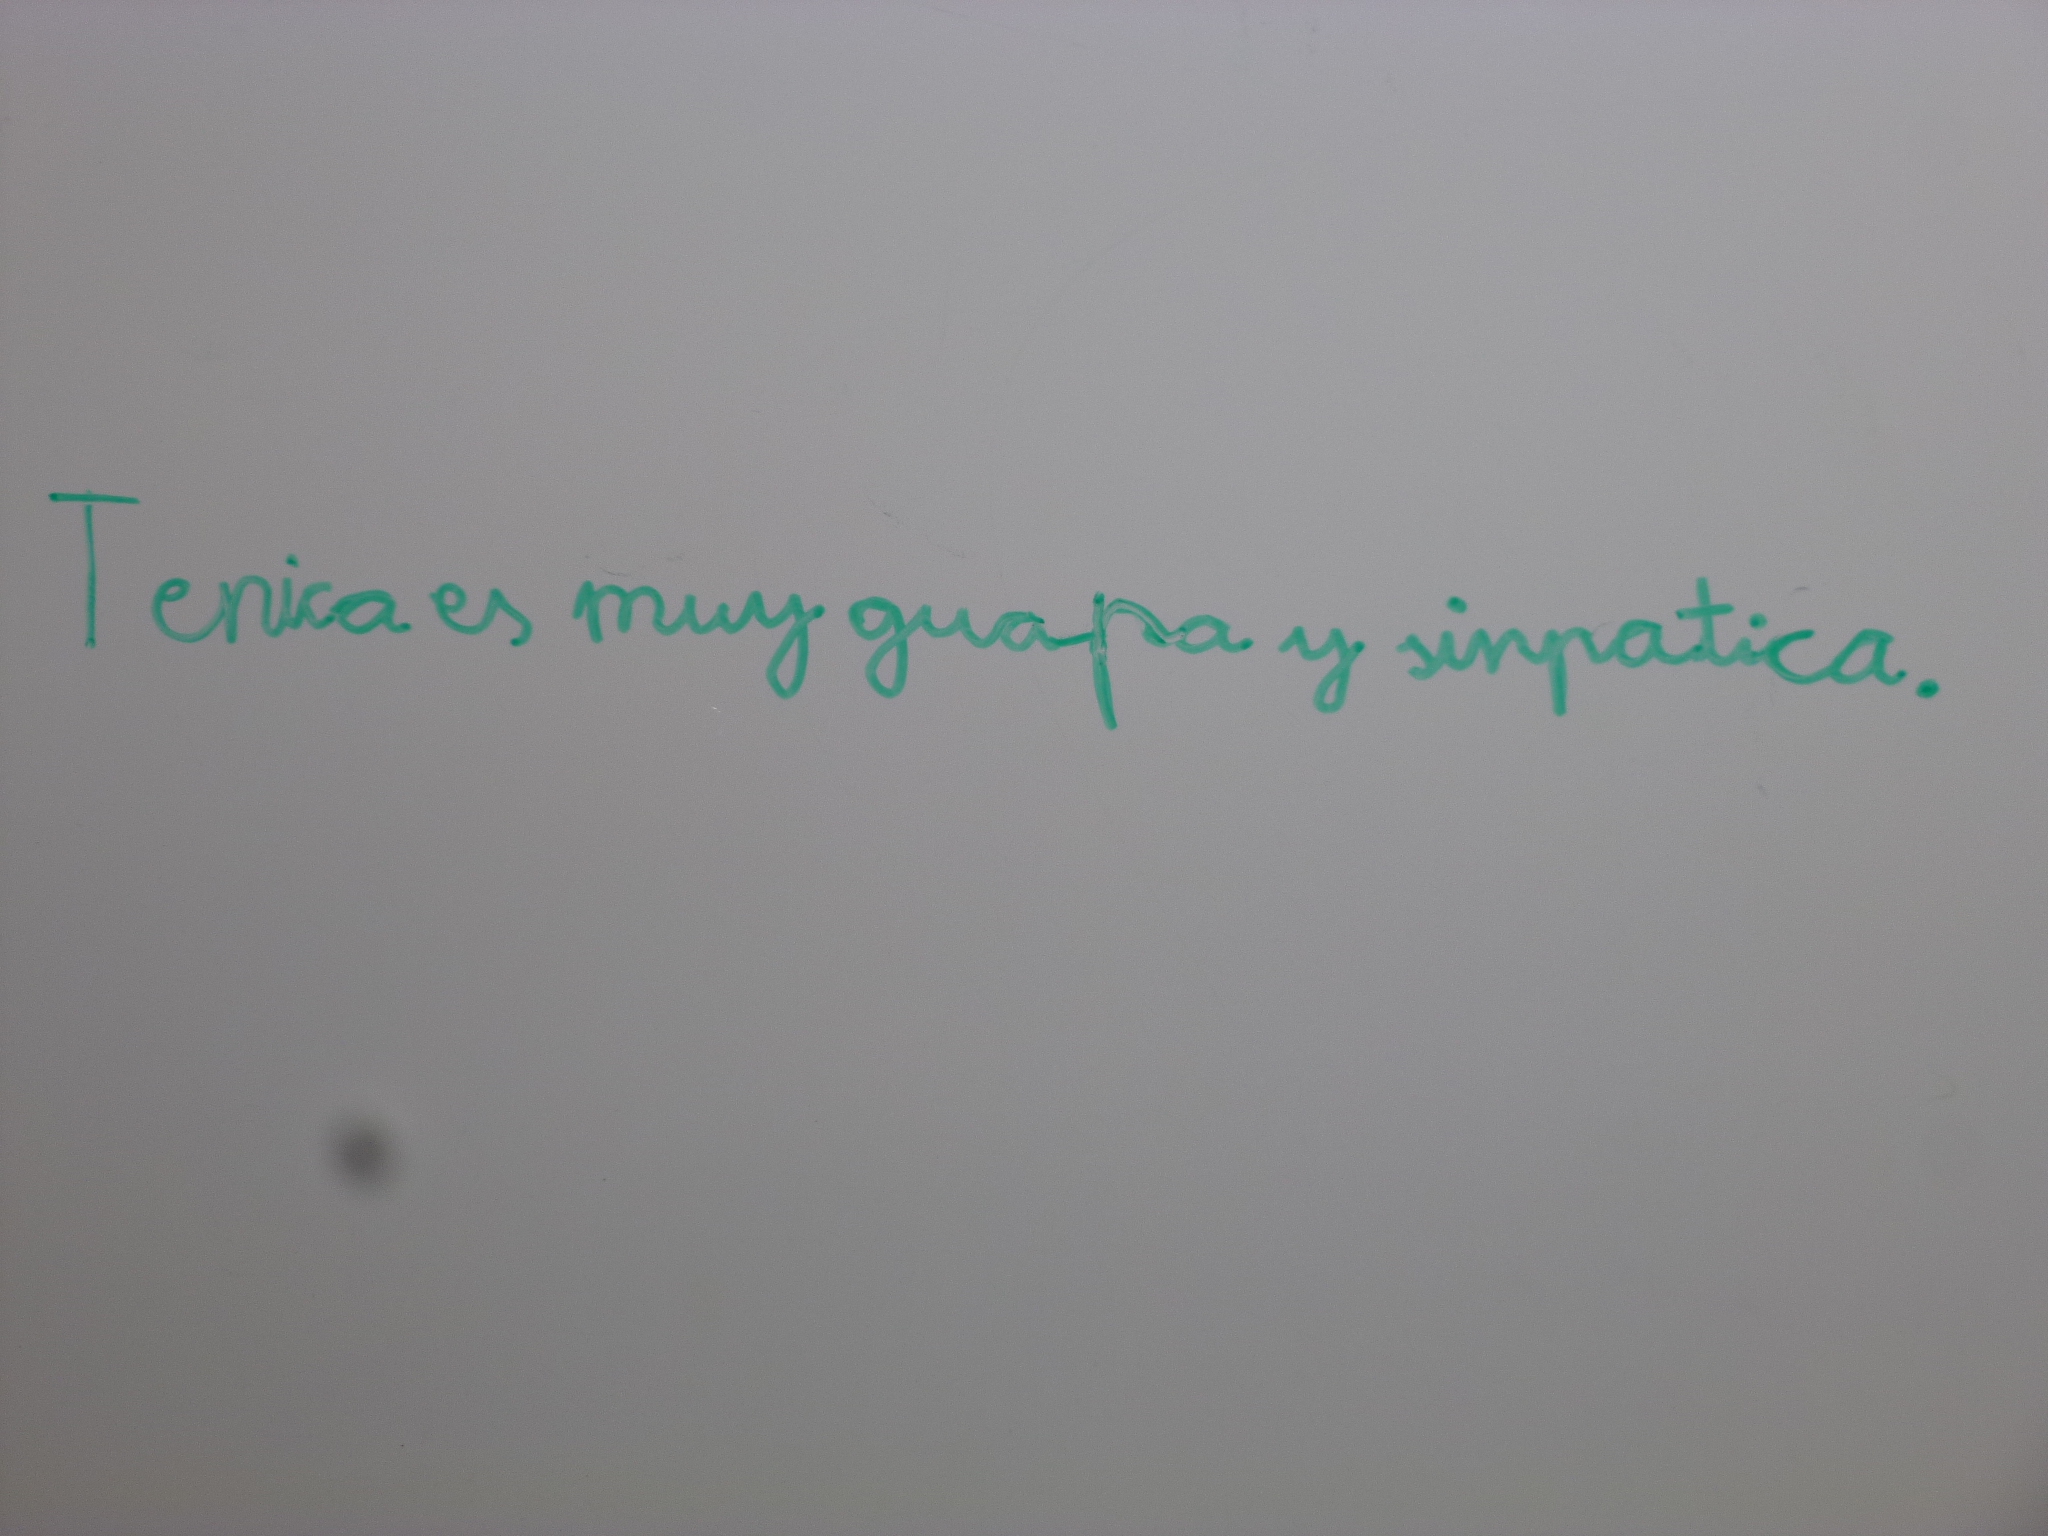 Tenica es muy guapa y sinpatica.